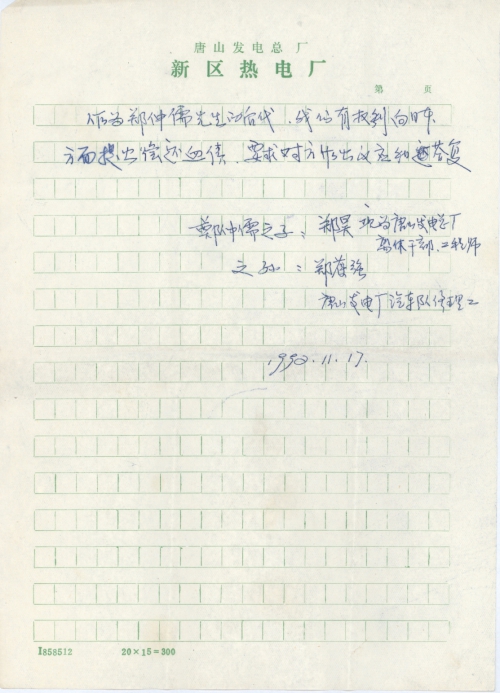 唐山发电总厂
新区热电厂
第 页
作为郑仲儒先生的后代,我们有权利向日本
方面提出偿还血债,要求对方作出义应的答复
郑仲儒之子:郑昊 现为唐山发电总厂
离休干部、工程师
之孙:郑
唐山发电厂汽车队修理工
1992.11.17.
1858512 20×15=300